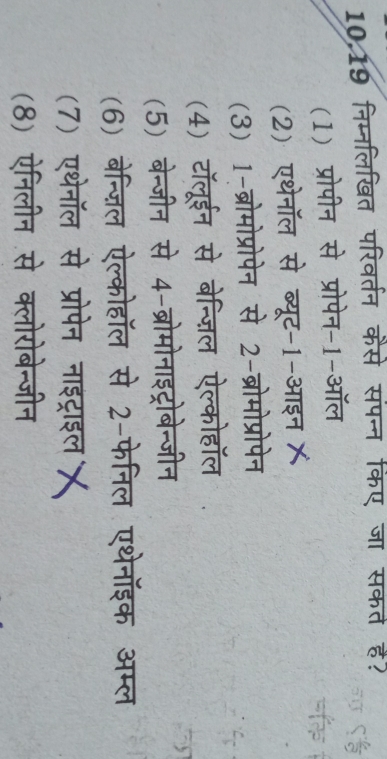 10.19 निम्नलिखित परिवर्तन कैसे संपन्न किए जा सकते हैं?
(1) प्रोपीन से प्रोपेन-1-ऑल
(2) एथेनॉल से ब्यूट-1-आइन ×
(3) 1-ब्रोमोप्रोपेन से 2-ब्रोमोप्रोपेन
(4) टॉलूईन से बेन्ज़िल ऐल्कोहॉल
(5) बेन्जीन से 4-ब्रोमोनाइट्रोबेन्जीन
(6) बेन्ज़िल ऐल्कोहॉल से 2-फेनिल एथेनॉइक अम्ल
(7) एथेनॉल से प्रोपेन नाइट्राइल ×
(8) ऐनिलीन से क्लोरोबेन्जीन